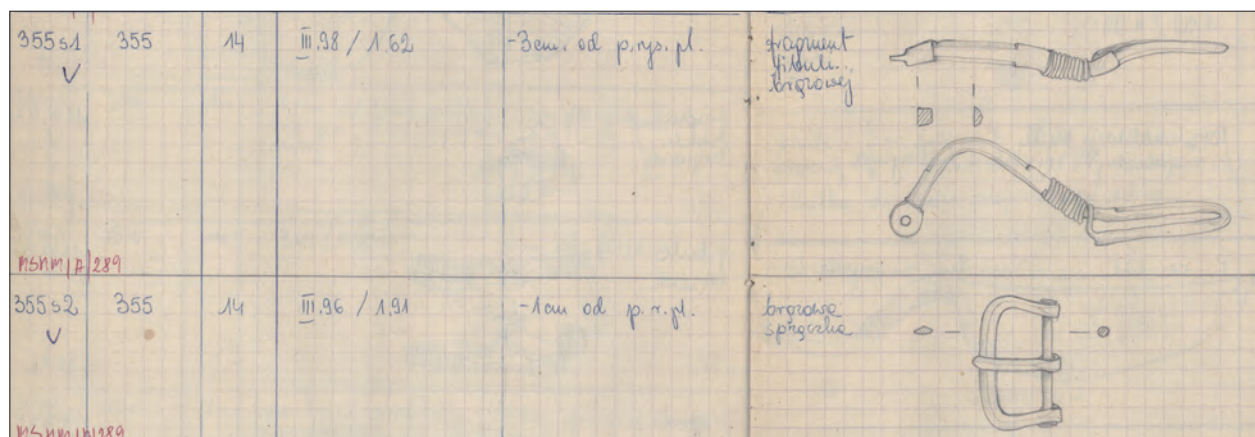 355s1 355 14 III.98 / 1.62 -3cm. od p. rys. pl. fragment
fibuli
brązowej
MSHM/A/289
355s2 355 14 III.96 / 1.91 -1cm od p. r. pl. brązowa
sprzączka
MSHM/A/289